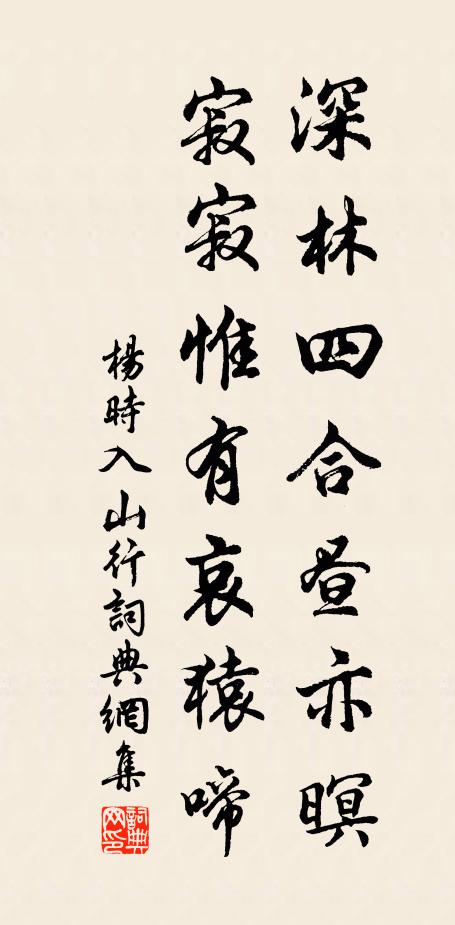 深林四合昼亦暝
寂寂惟有哀猿啼
楊時入山行詞典網集
詞典
网印